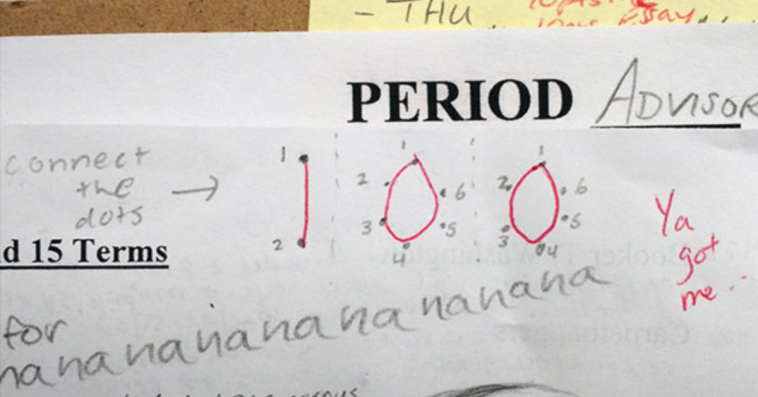 - THU
Essay
PERIOD ADVISOR
connect
the
dots →
1 2
1 2 3 4 5 6
1 2 3 4 5 6
Ya
got
me..
d 15 Terms
for
nana nananana na nanana